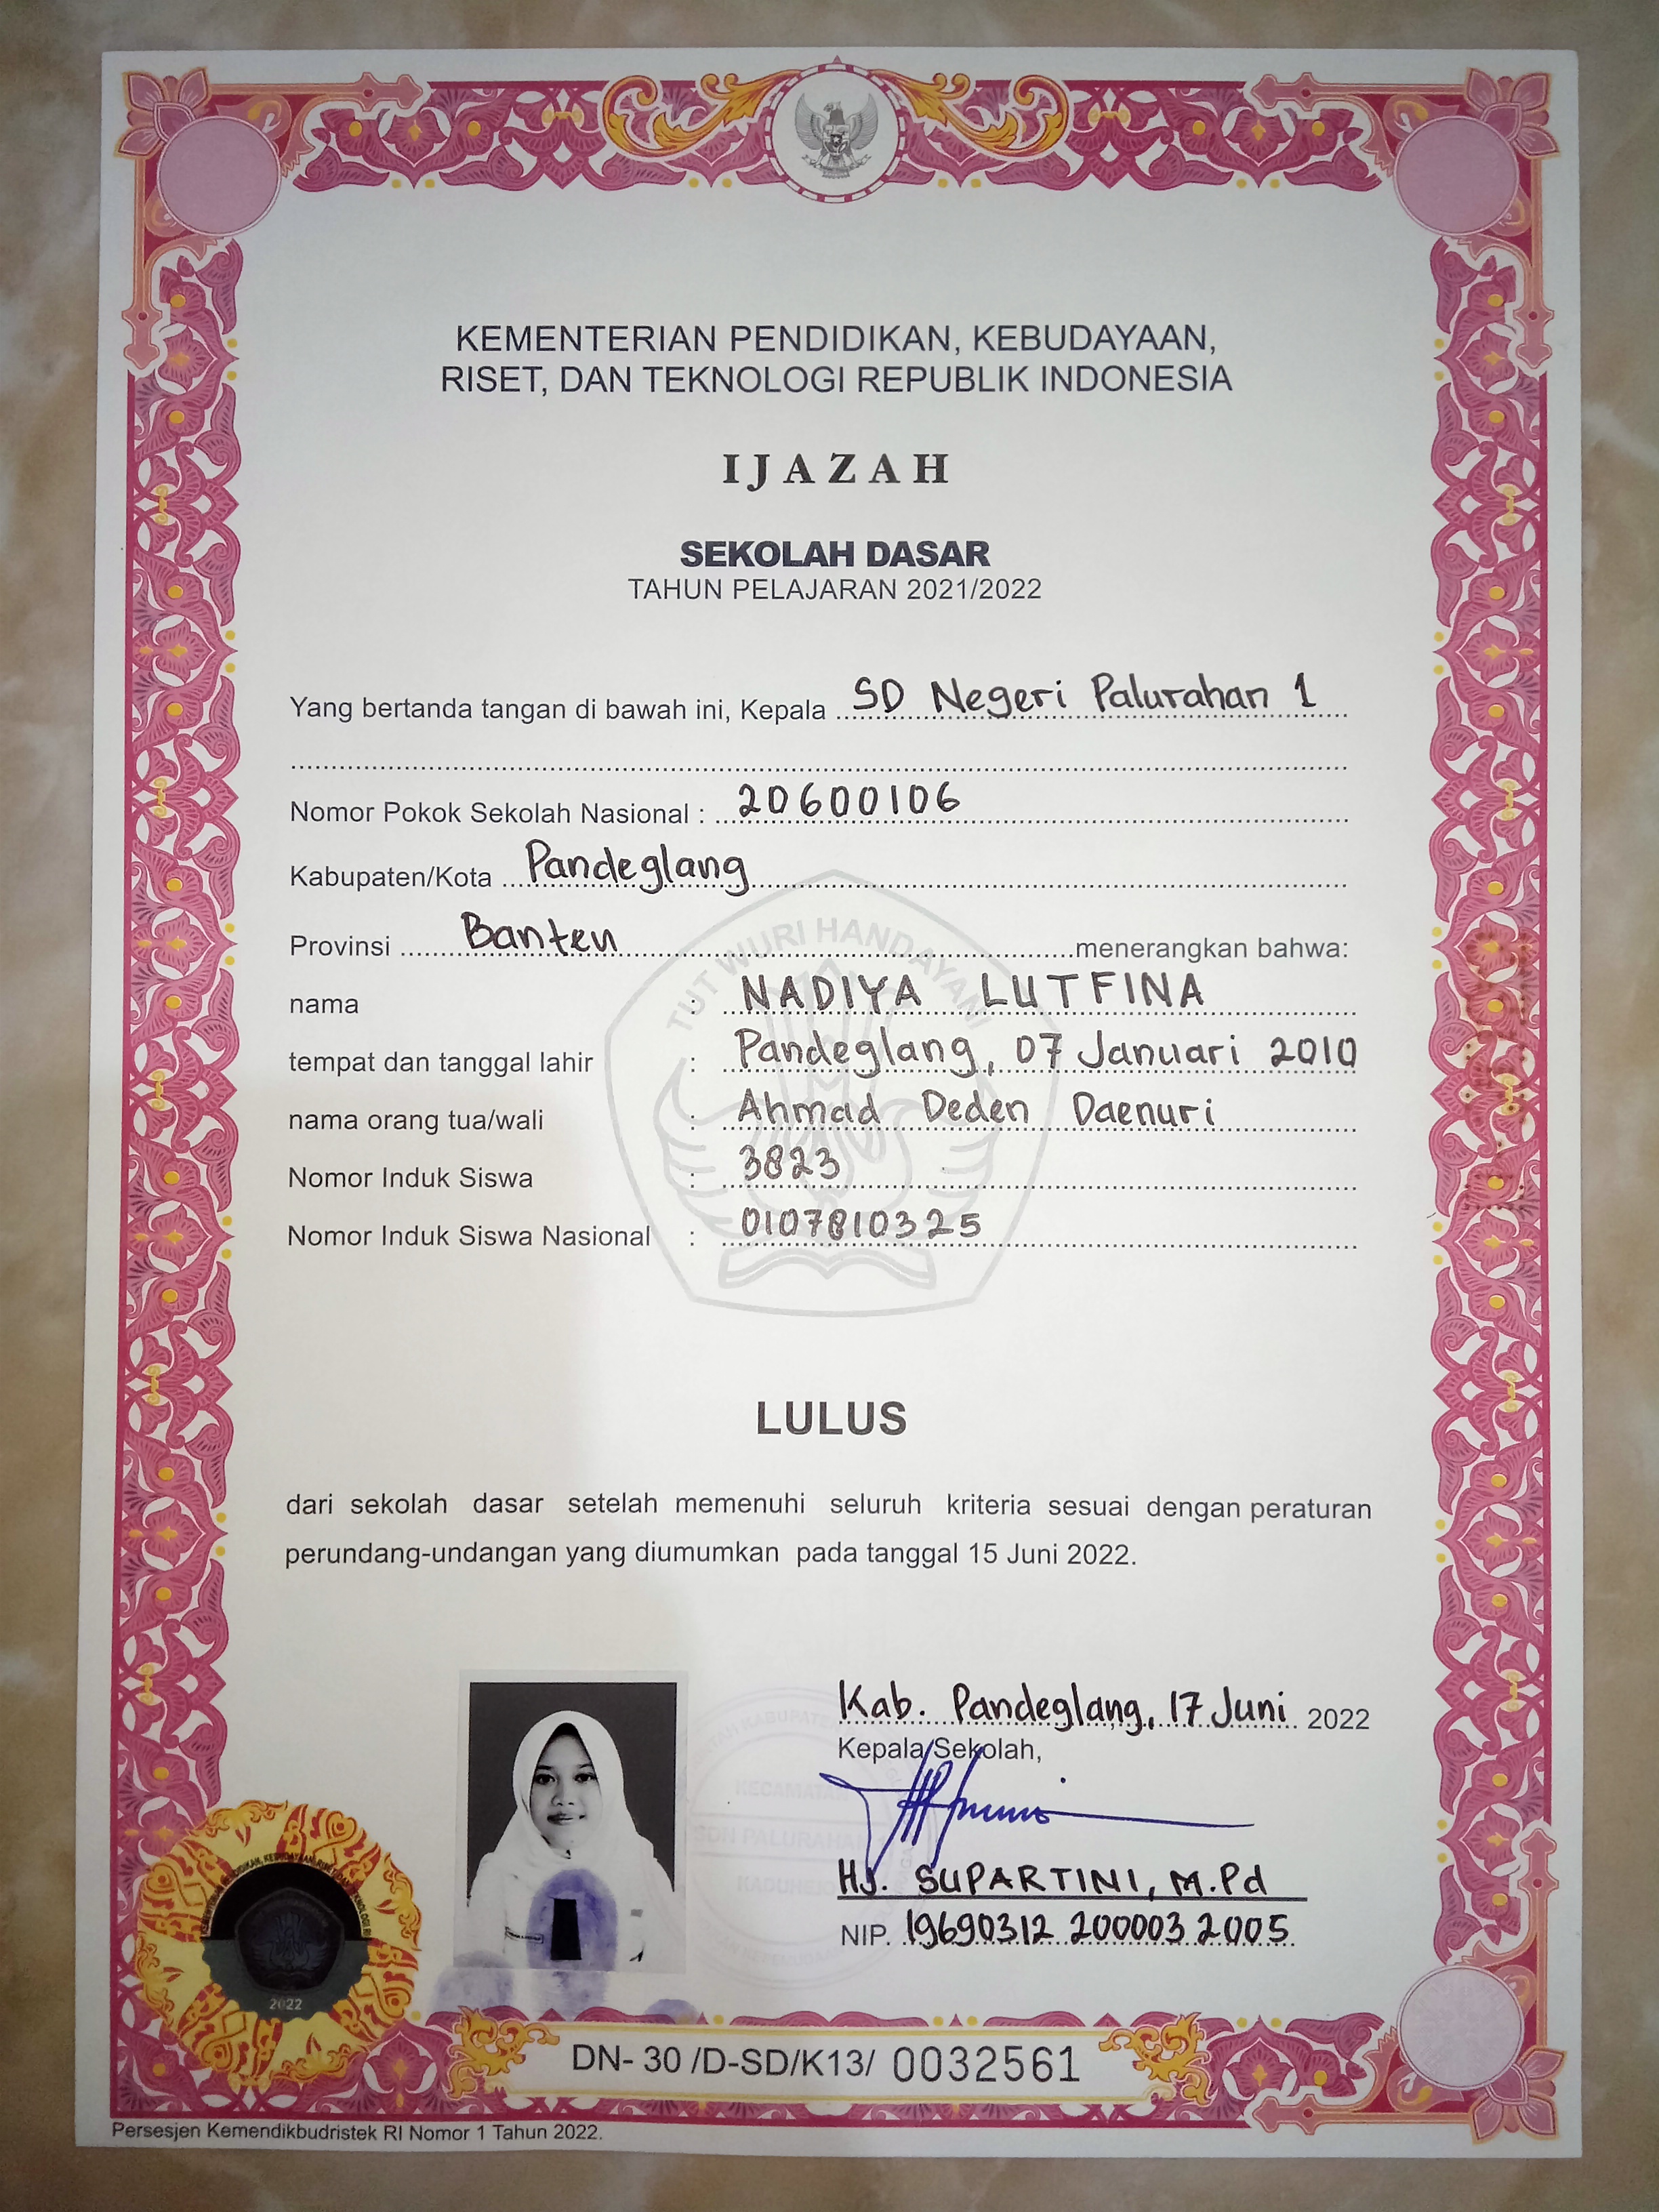 KEMENTERIAN PENDIDIKAN, KEBUDAYAAN,
RISET, DAN TEKNOLOGI REPUBLIK INDONESIA
IJAZAH
SEKOLAH DASAR
TAHUN PELAJARAN 2021/2022
Yang bertanda tangan di bawah ini, Kepala SD Negeri Palurahan 1
Nomor Pokok Sekolah Nasional : 20600106
Kabupaten/Kota Pandeglang
Provinsi Banten menerangkan bahwa:
TUT WURI HANDAYANI
nama : NADIYA LUTFINA
tempat dan tanggal lahir : Pandeglang, 07 Januari 2010
nama orang tua/wali : Ahmad Deden Daenuri
Nomor Induk Siswa : 3823
Nomor Induk Siswa Nasional : 0107810325
LULUS
dari sekolah dasar setelah memenuhi seluruh kriteria sesuai dengan peraturan
perundang-undangan yang diumumkan pada tanggal 15 Juni 2022.
Kab. Pandeglang, 17 Juni 2022
Kepala Sekolah,
KECAMATAN
SDN PALURAHAN
HJ. SUPARTINI, M.Pd
NIP. 19690312 200003 2005
2022
DN- 30 /D-SD/K13/ 0032561
Persesjen Kemendikbudristek RI Nomor 1 Tahun 2022.